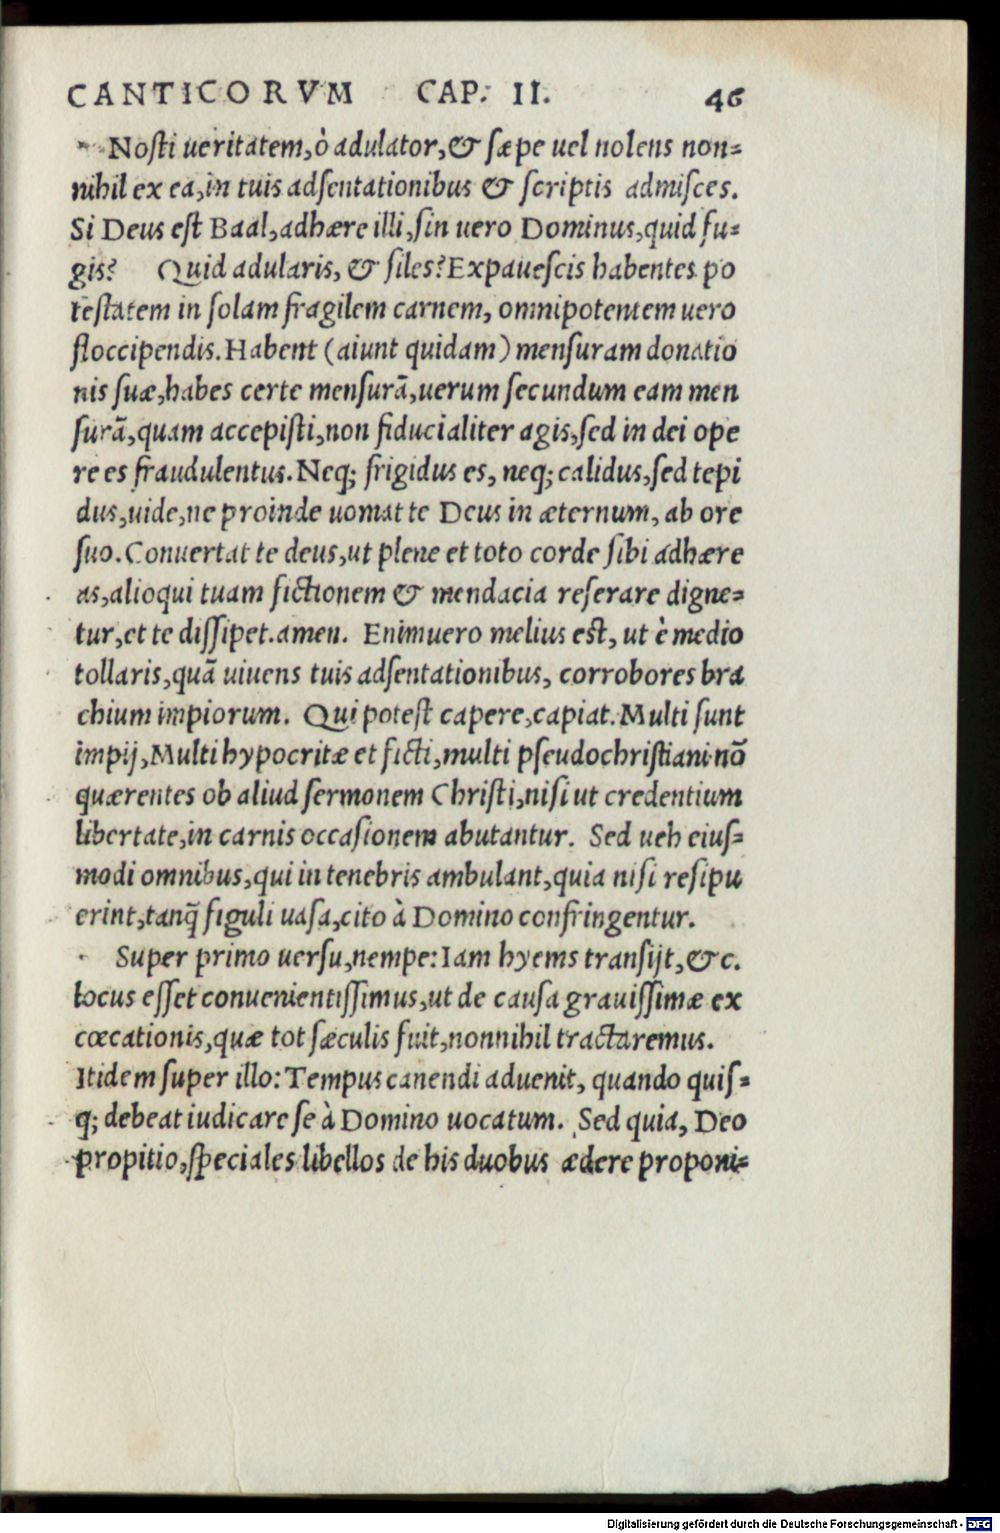 CANTICORVM CAP. II. 46
Nosti ueritatem, ò adulator, & sæpe uel nolens non-
nihil ex ea, in tuis adsentationibus & scriptis admisces.
Si Deus est Baal, adhære illi, sin uero Dominus, quid fu-
gis? Quid adularis, & siles? Expauescis habentes po
testatem in solam fragilem carnem, omnipotentem uero
floccipendis. Habent (aiunt quidam) mensuram donatio
nis suæ, habes certe mensurã, uerum secundum eam men
surã, quam accepisti, non fiducialiter agis, sed in dei ope
re es fraudulentus. Neq; frigidus es, neq; calidus, sed tepi
dus, uide, ne proinde uomat te Deus in æternum, ab ore
suo. Conuertat te deus, ut plene et toto corde sibi adhære
as, alioqui tuam fictionem & mendacia reserare digne-
tur, et te dissipet. amen. Enimuero melius est, ut è medio
tollaris, quã uiuens tuis adsentationibus, corrobores bra
chium impiorum. Qui potest capere, capiat. Multi sunt
impij, Multi hypocritæ et ficti, multi pseudochristiani nõ
quærentes ob aliud sermonem Christi, nisi ut credentium
libertate, in carnis occasionem abutantur. Sed ueh eius-
modi omnibus, qui in tenebris ambulant, quia nisi resipu
erint, tanq̃ figuli uasa, cito à Domino confringentur.
Super primo uersu, nempe: Iam hyems transijt, & c.
locus esset conuenientissimus, ut de causa grauissimæ ex
cœcationis, quæ tot sæculis fuit, nonnihil tractaremus.
Itidem super illo: Tempus canendi aduenit, quando quis-
q; debeat iudicare se à Domino uocatum. Sed quia, Deo
propitio, speciales libellos de his duobus ædere proponi-
Digitalisierung gefördert durch die Deutsche Forschungsgemeinschaft - DFG